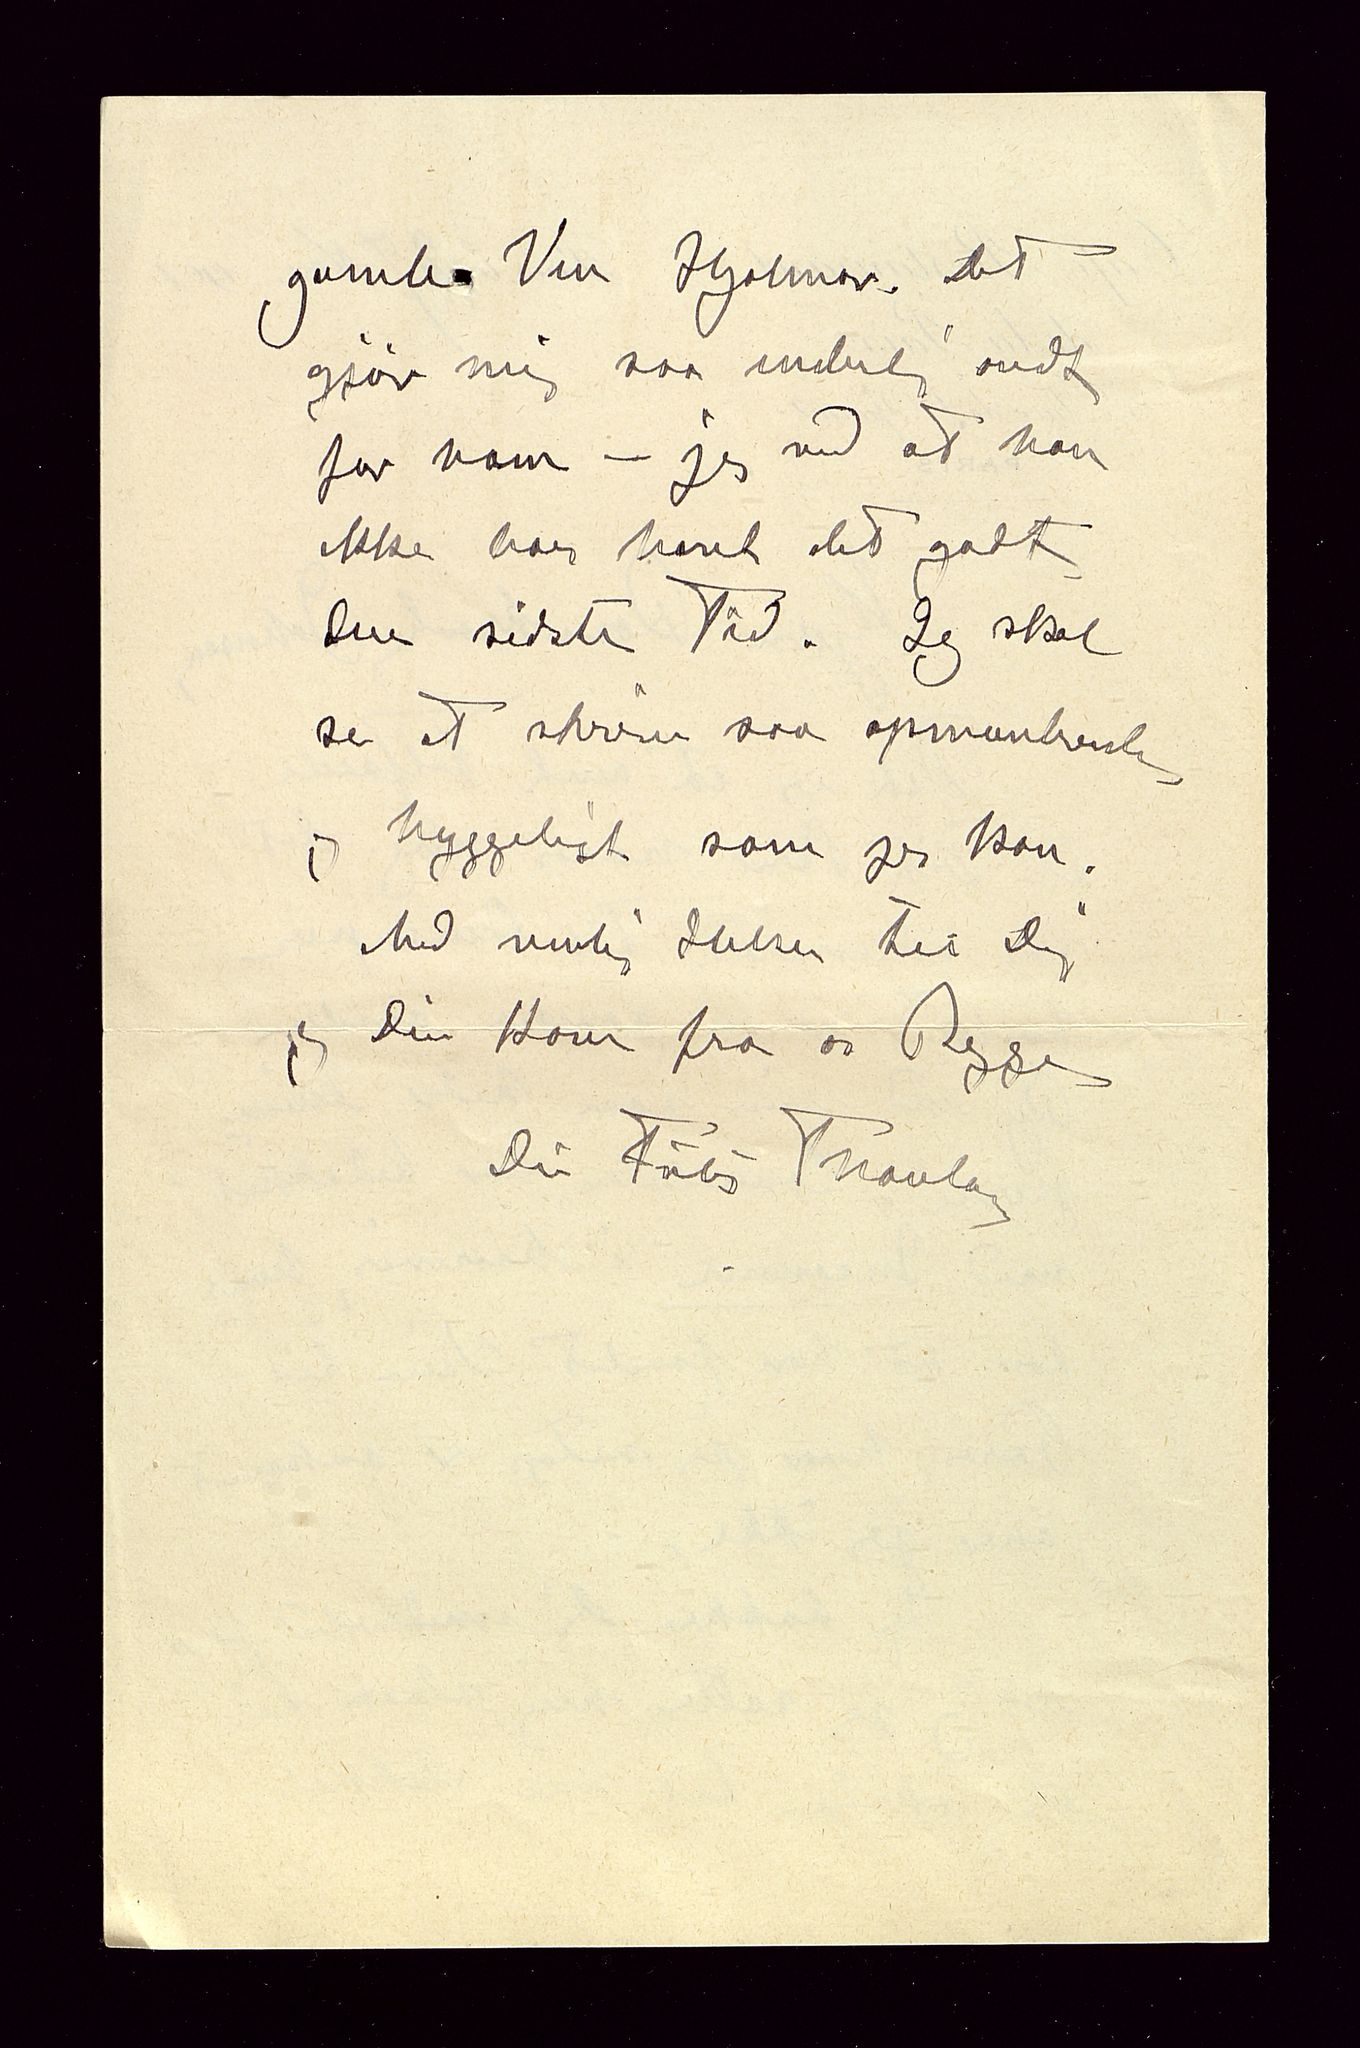 gamle Ven Hjalmar. Det
gjør mig saa inderlig ondt
for ham – jeg ved at han
ikke har havt det godt
den sidste Tid. Jeg skal
se at skrive saa opmuntrende
og hyggeligt som jeg kan.
Med venlig Hilsen til Dig
og Din Kone fra os Begge
Din Frits Thaulow